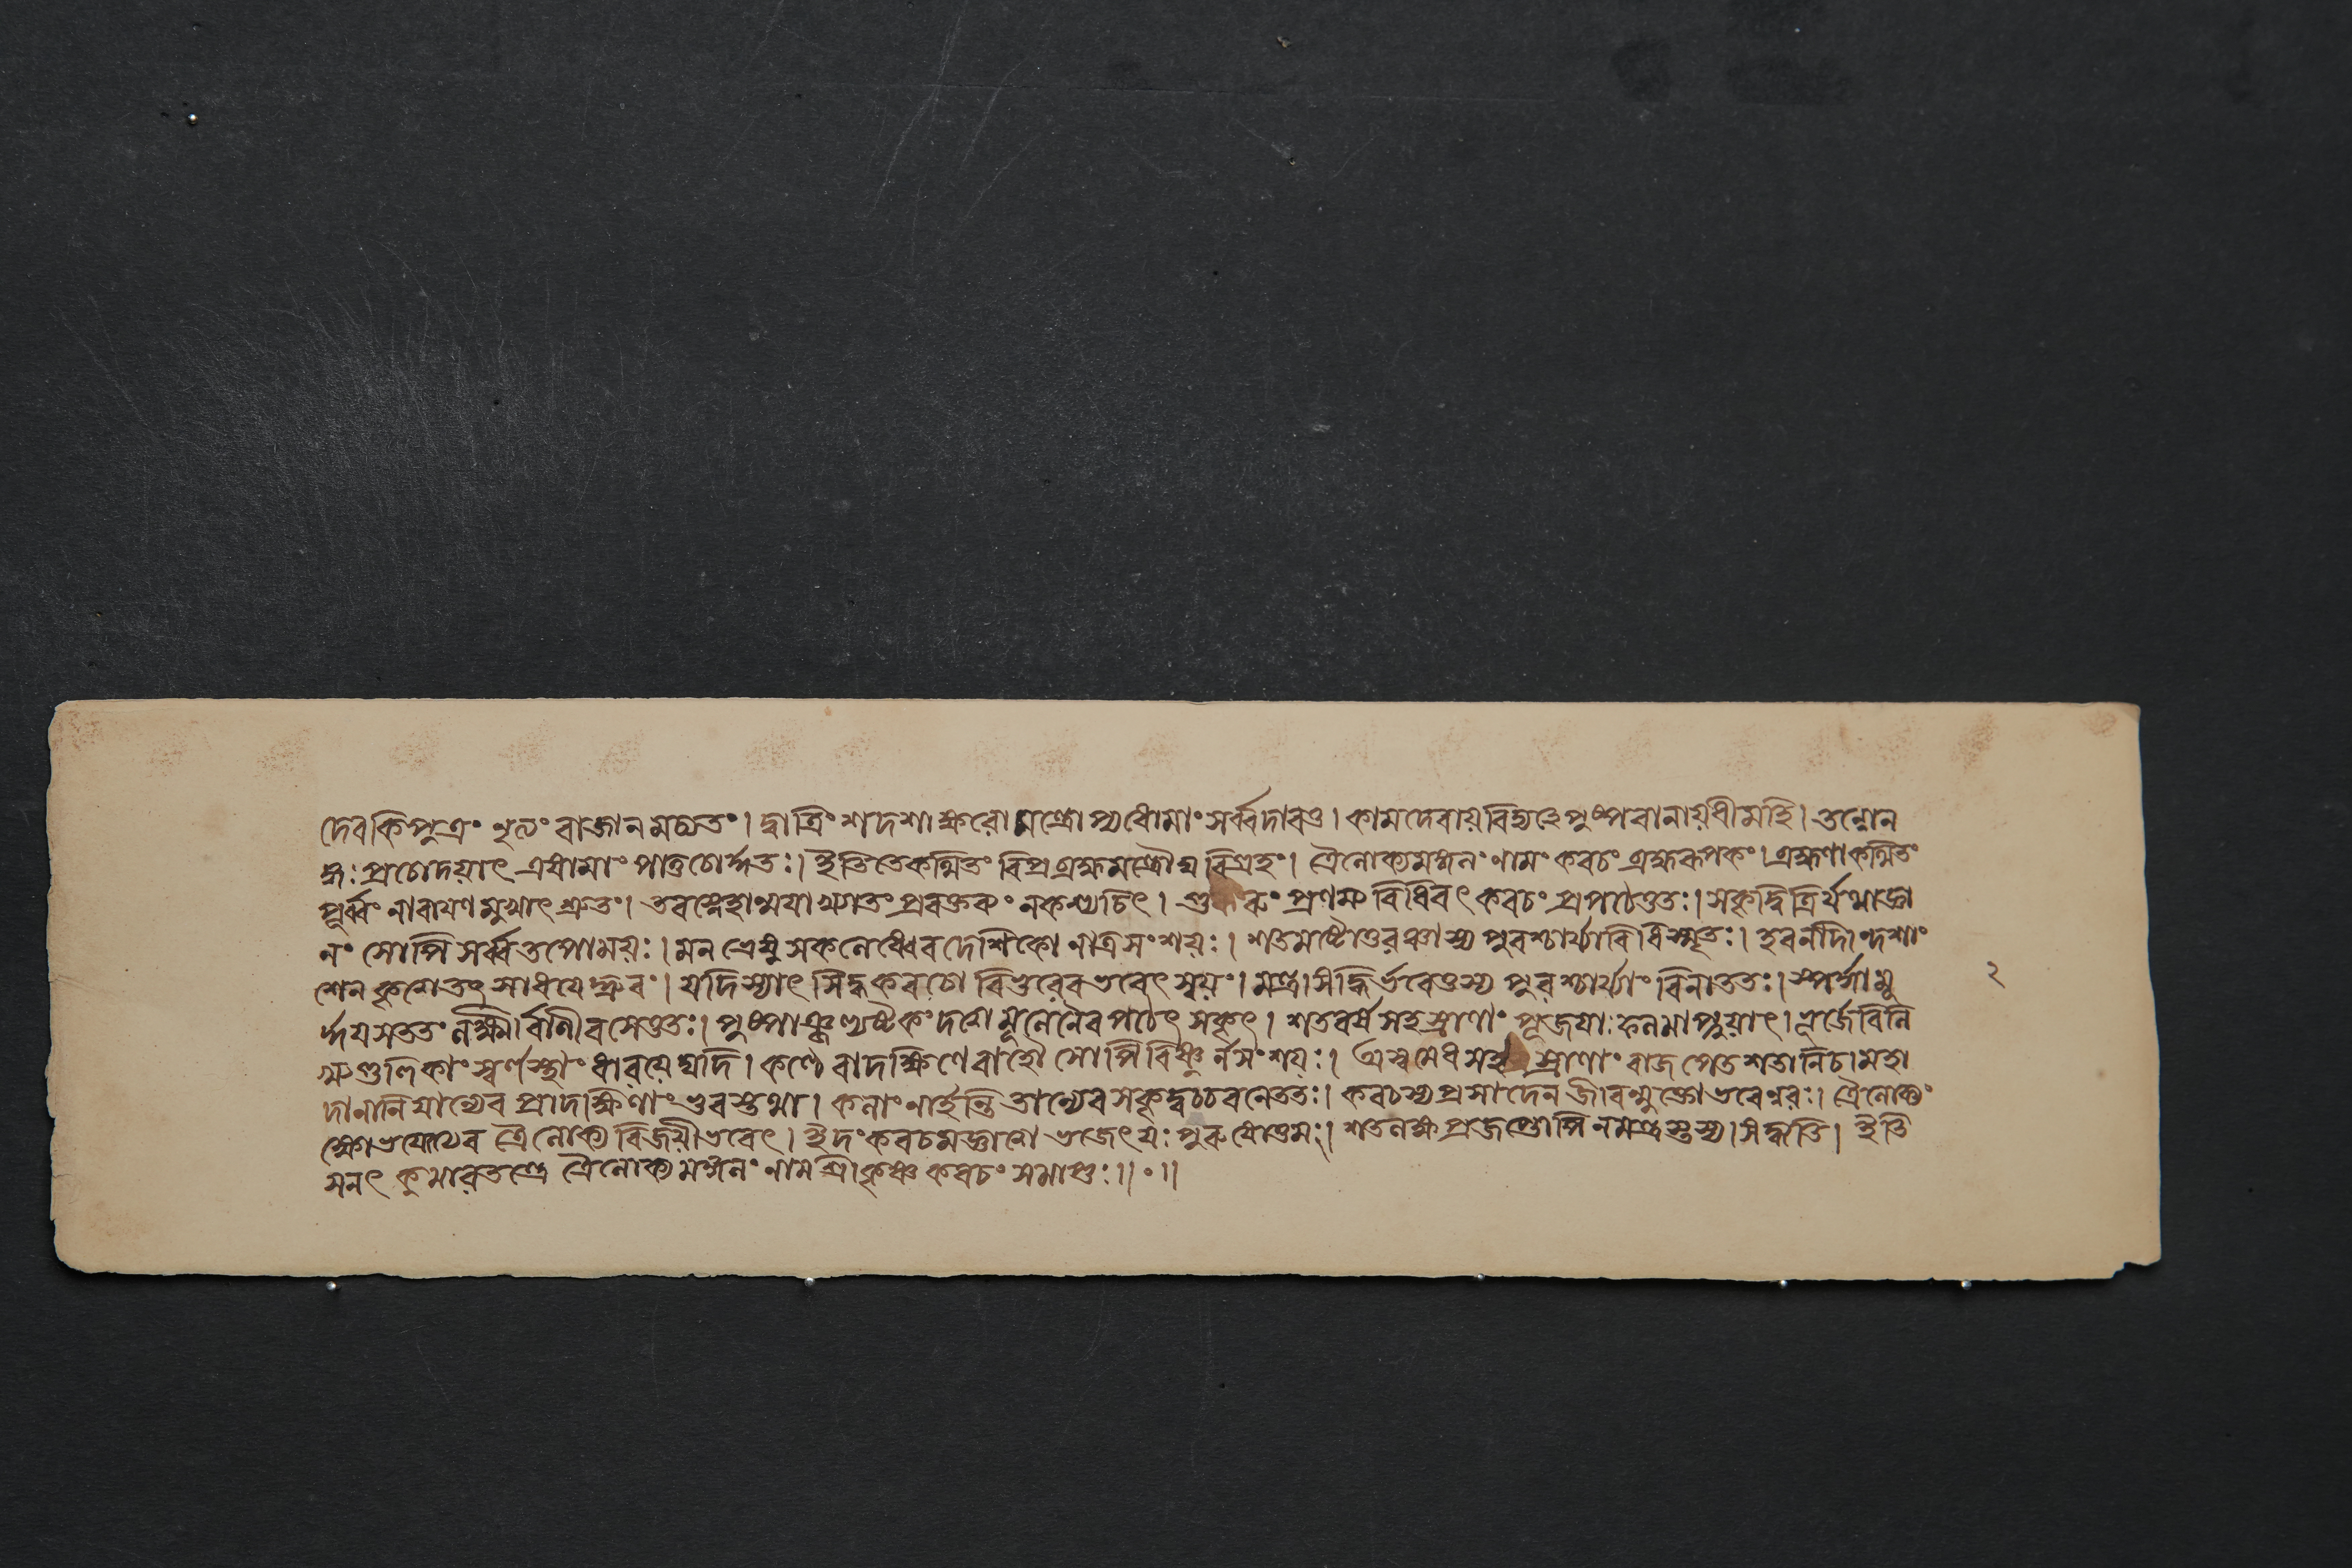 দেবকিপুত্রং মূলং বাজানমচ্যুতং। দ্বাত্রিংশদশাক্ষরো মন্ত্রোপ্যধোমাং সর্ব্বদাবতু। কামদেবায়বিদ্মহেপুষ্পবানায়ধীমহি। তন্নোন
ঙ্গঃ প্রচোদয়াৎ এষামাং পাতুচোর্দ্ধতঃ। ইতিতেকত্থিতং বিপ্র ব্রহ্মমন্ত্রৌঘ বিগ্রহং। ত্রৈলোক্যমঙ্গলং নামং কবচং ব্রহ্মরূপকং। ব্রহ্মণাকত্থিতং
পূর্ব্বং নারায়ণ মুখাৎ শ্রুতং। তবস্নেহান্ময়াখ্যাতং প্রবক্তব্যং নকস্যচিৎ। গুরুং প্রণম্য বিধিবৎ কবচং প্রপঠেত্ততঃ। সকৃদ্বিত্রির্যথাজ্ঞা
নং সোপি সর্ব্বতপোময়ঃ। মন্ত্রেষু সকলেষ্বেব দেশিকো নাত্রসংশয়ঃ। শতমষ্টোত্তরঞ্চাস্য পুরশ্চর্য্যাবিধিস্মৃতঃ। হবনাদিদশাং
শেন কৃত্বাতৎ সাধয়েদ্ধ্রুবং। যদিস্যাৎ সিদ্ধকবচো বিষ্ণুরেবভবেৎ স্বয়ং। মন্ত্রসিদ্ধির্ভবেত্তস্য পুরশ্চর্য্যাং বিনাততঃ। স্পর্দ্ধামু
র্দ্ধয়সততং লক্ষ্মীর্বাণীবসেত্ততঃ। পুষ্পাঞ্জল্যষ্টকং দত্বা মূলেনৈব পঠেৎ সকৃৎ। শতবর্ষসহস্রাণাং পূজয়াঃ ফলমাপ্নুয়াৎ। ভূর্জেবিলি
খ্যগুলিকাং স্বর্ণস্থাং ধারয়েদ্যদি। কণ্ঠে বাদক্ষিণেবাহৌ সোপি বিষ্ণুর্নসংশয়ঃ। অশ্বমেধসহস্রাণাং বাজপেতশতানিচ। মহা
দানানিযান্যেব প্রাদক্ষিণাং ভুবস্তথা। কলাং নার্হন্তি তান্যেবসকৃদুচ্চরণেততঃ। কবচস্যপ্রসাদেন জীবন্মুক্তোভবেন্নরঃ। ত্রৈলোক্যং
ক্ষোভয়ত্যেব ত্রৈলোক্য বিজয়ীভবেৎ। ইদংকবচমজ্ঞাত্বা ভজেৎযঃ পুরুষোত্তমং। শতলক্ষংপ্রজপ্তোপি নমন্ত্রস্তস্য সিদ্ধ্যতি। ইতি
সনৎ কুমারতন্ত্রে ত্রৈলোক্যমঙ্গলং নামশ্রীকৃষ্ণ কবচং সমাপ্তঃ॥॰॥
২